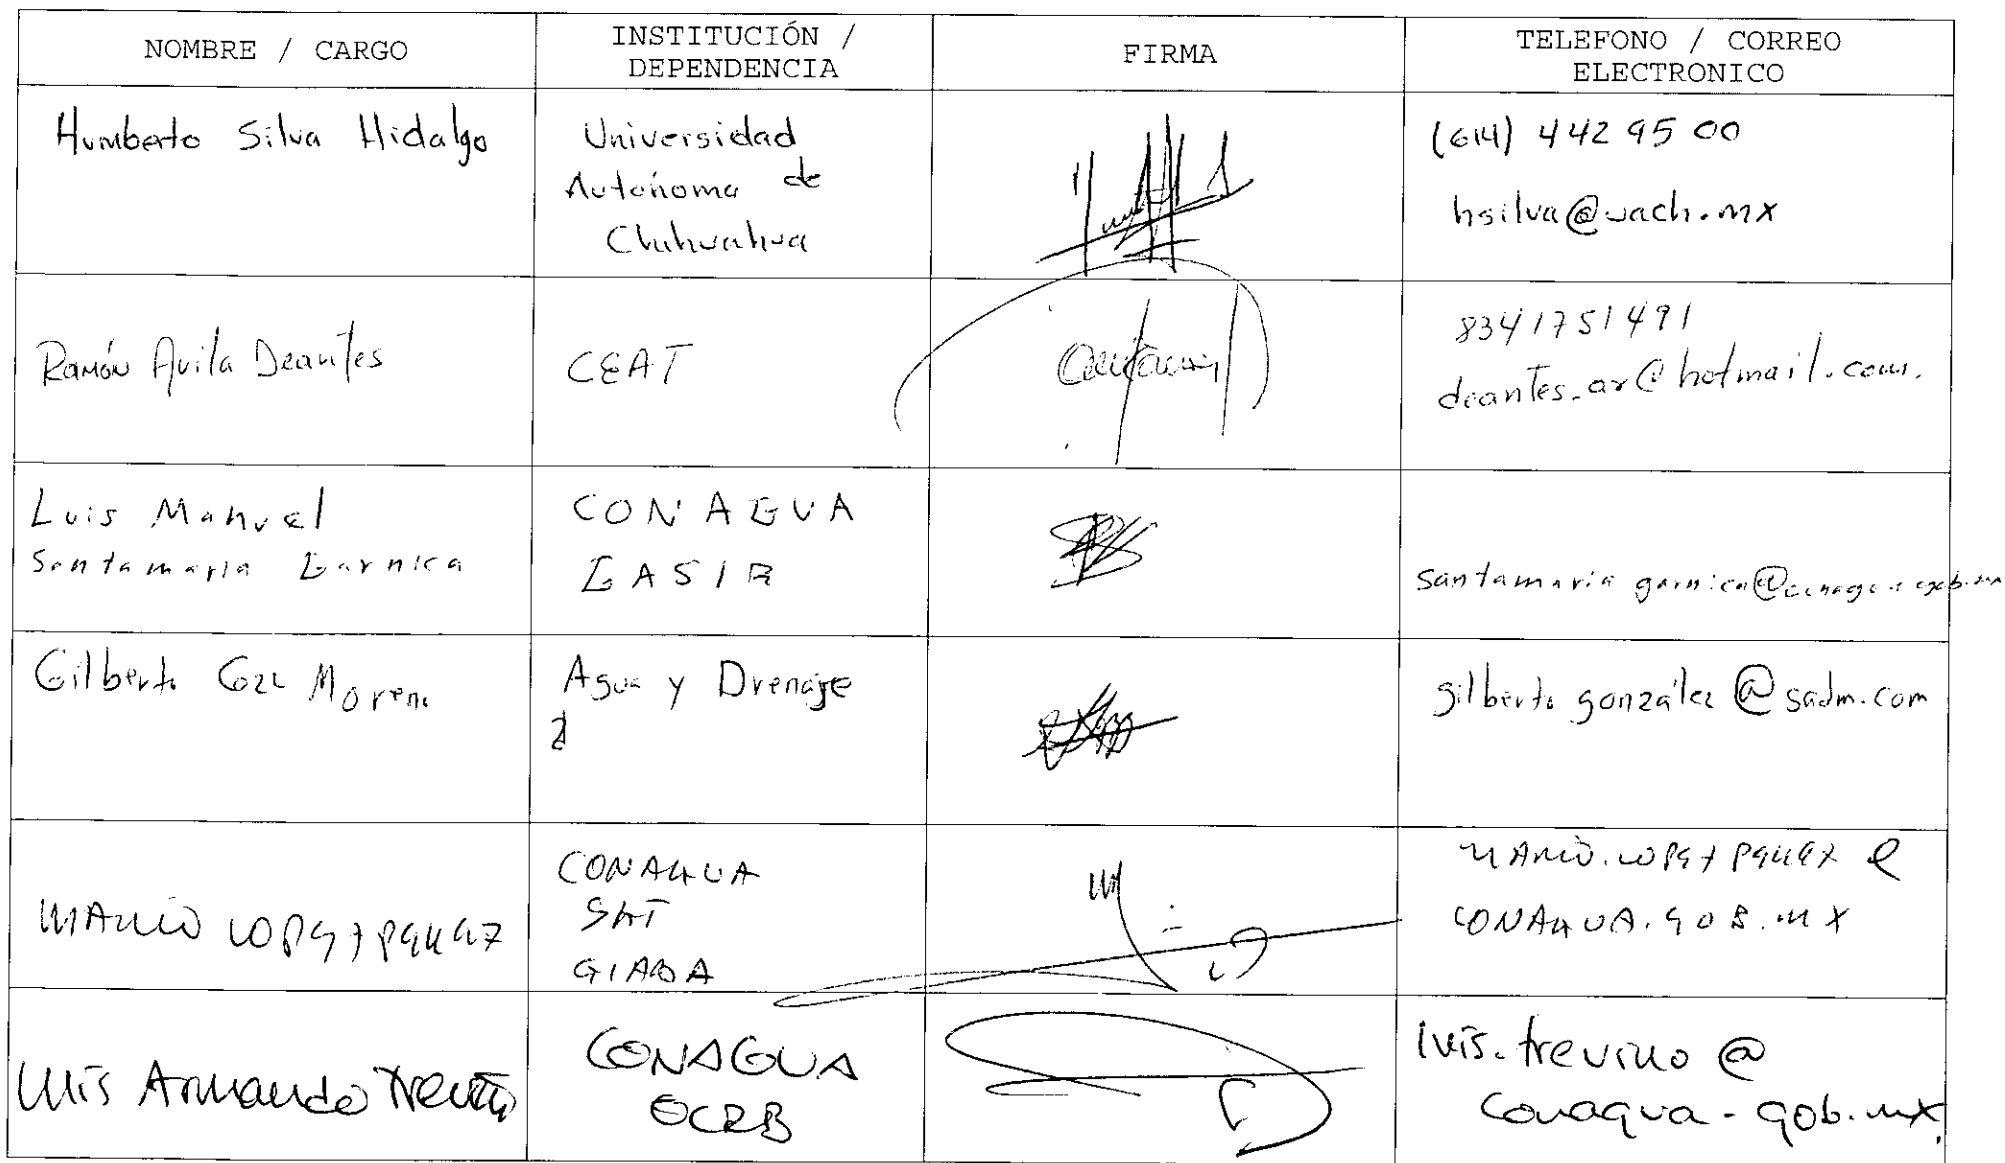 NOMBRE / CARGO
INSTITUCIÓN /
DEPENDENCIA
FIRMA
TELEFONO / CORREO
ELECTRONICO
Humberto Silva Hidalgo
Universidad
Autónoma de
Chihuahua
(614) 442 95 00
hsilva@uach.mx
Ramón Avila Deantes
CEAT
8341751491
deantes_ar@hotmail.com.
Luis Manuel
Santamaria Garnica
CONAGUA
GASIR
santamaria garnica@conagua.gob.mx
Gilberto Gzz Moreno
Agua y Drenaje
gilberto gonzález@sadm.com
MARIO LOPEZ PEREZ
CONAGUA
SGT
GIABA
MARIO.LOPEZ PEREZ @
CONAGUA.GOB.MX
Luis Armando Treviño
CONAGUA
OCRB
luis.trevino @
conagua-gob.mx